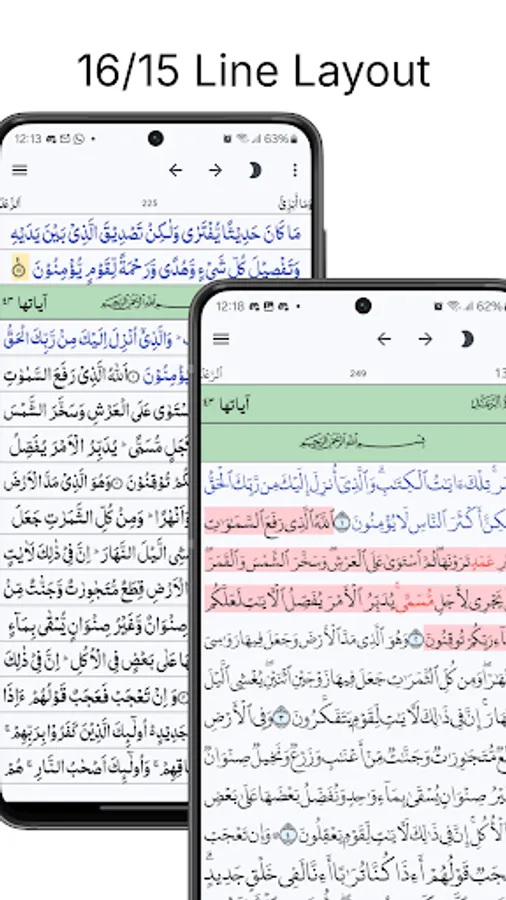 16/15 Line Layout
12:13
63%
وَمَا أُبَرِّئُ
225
مَا كَانَ حَدِيْثًا يُّفْتَرٰى وَلٰكِنْ تَصْدِيْقَ الَّذِيْ بَيْنَ يَدَيْهِ
وَتَفْصِيْلَ كُلِّ شَيْءٍ وَّهُدًى وَّرَحْمَةً لِّقَوْمٍ يُّؤْمِنُوْنَ
آياتها ٤٣
وَالَّذِيْٓ اُنْزِلَ اِلَيْكَ مِنْ رَّبِّكَ الْحَقُّ
يُؤْمِنُوْنَ ۝ اَللّٰهُ الَّذِيْ رَفَعَ السَّمٰوٰتِ
اسْتَوٰى عَلَى الْعَرْشِ وَسَخَّرَ الشَّمْسَ
لِاَجَلٍ مُّسَمًّى ۚ يُدَبِّرُ الْاَمْرَ يُفَصِّلُ
رَبِّكُمْ تُوْقِنُوْنَ ۝ وَهُوَ الَّذِيْ مَدَّ الْاَرْضَ
وَاَنْهٰرًا ۚ وَمِنْ كُلِّ الثَّمَرٰتِ جَعَلَ
يُغْشِى الَّيْلَ النَّهَارَ ۚ اِنَّ فِيْ ذٰلِكَ لَاٰيٰتٍ
الْاَرْضِ قِطَعٌ مُّتَجٰوِرٰتٌ وَّجَنّٰتٌ مِّنْ
صِنْوَانٌ وَّغَيْرُ صِنْوَانٍ يُّسْقٰى بِمَآءٍ
بَعْضَهَا عَلٰى بَعْضٍ فِى الْاُكُلِ ۚ اِنَّ فِيْ ذٰلِكَ
وَاِنْ تَعْجَبْ فَعَجَبٌ قَوْلُهُمْ ءَاِذَا
جَدِيْدٍ ۬ اُولٰٓئِكَ الَّذِيْنَ كَفَرُوْا بِرَبِّهِمْ ۚ
اَعْنَاقِهِمْ ۚ وَاُولٰٓئِكَ اَصْحٰبُ النَّارِ ۚ هُمْ
12:18
62%
249
آياتها ٤٣
بِسْمِ اللَّهِ الرَّحْمَٰنِ الرَّحِيمِ
تِلْكَ ءَايَٰتُ ٱلْكِتَٰبِ ۗ وَٱلَّذِىٓ أُنزِلَ إِلَيْكَ مِن رَّبِّكَ ٱلْحَقُّ
وَلَٰكِنَّ أَكْثَرَ ٱلنَّاسِ لَا يُؤْمِنُونَ ١ ٱللَّهُ ٱلَّذِى رَفَعَ ٱلسَّمَٰوَٰتِ
عَمَدٍ تَرَوْنَهَا ۖ ثُمَّ ٱسْتَوَىٰ عَلَى ٱلْعَرْشِ ۖ وَسَخَّرَ ٱلشَّمْسَ وَٱلْقَمَرَ ۖ
يَجْرِى لِأَجَلٍ مُّسَمًّى ۚ يُدَبِّرُ ٱلْأَمْرَ يُفَصِّلُ ٱلْءَايَٰتِ لَعَلَّكُم
بِلِقَآءِ رَبِّكُمْ تُوقِنُونَ ٢ وَهُوَ ٱلَّذِى مَدَّ ٱلْأَرْضَ وَجَعَلَ فِيهَا رَوَٰسِىَ
وَأَنْهَٰرًا ۖ وَمِن كُلِّ ٱلثَّمَرَٰتِ جَعَلَ فِيهَا زَوْجَيْنِ ٱثْنَيْنِ ۖ يُغْشِى ٱلَّيْلَ
ٱلنَّهَارَ ۚ إِنَّ فِى ذَٰلِكَ لَءَايَٰتٍ لِّقَوْمٍ يَتَفَكَّرُونَ ٣ وَفِى ٱلْأَرْضِ
قِطَعٌ مُّتَجَٰوِرَٰتٌ وَجَنَّٰتٌ مِّنْ أَعْنَٰبٍ وَزَرْعٌ وَنَخِيلٌ صِنْوَانٌ
وَغَيْرُ صِنْوَانٍ يُسْقَىٰ بِمَآءٍ وَٰحِدٍ وَنُفَضِّلُ بَعْضَهَا عَلَىٰ بَعْضٍ
فِى ٱلْأُكُلِ ۚ إِنَّ فِى ذَٰلِكَ لَءَايَٰتٍ لِّقَوْمٍ يَعْقِلُونَ ٤ وَإِن تَعْجَبْ
فَعَجَبٌ قَوْلُهُمْ أَءِذَا كُنَّا تُرَٰبًا أَءِنَّا لَفِى خَلْقٍ جَدِيدٍ ۗ